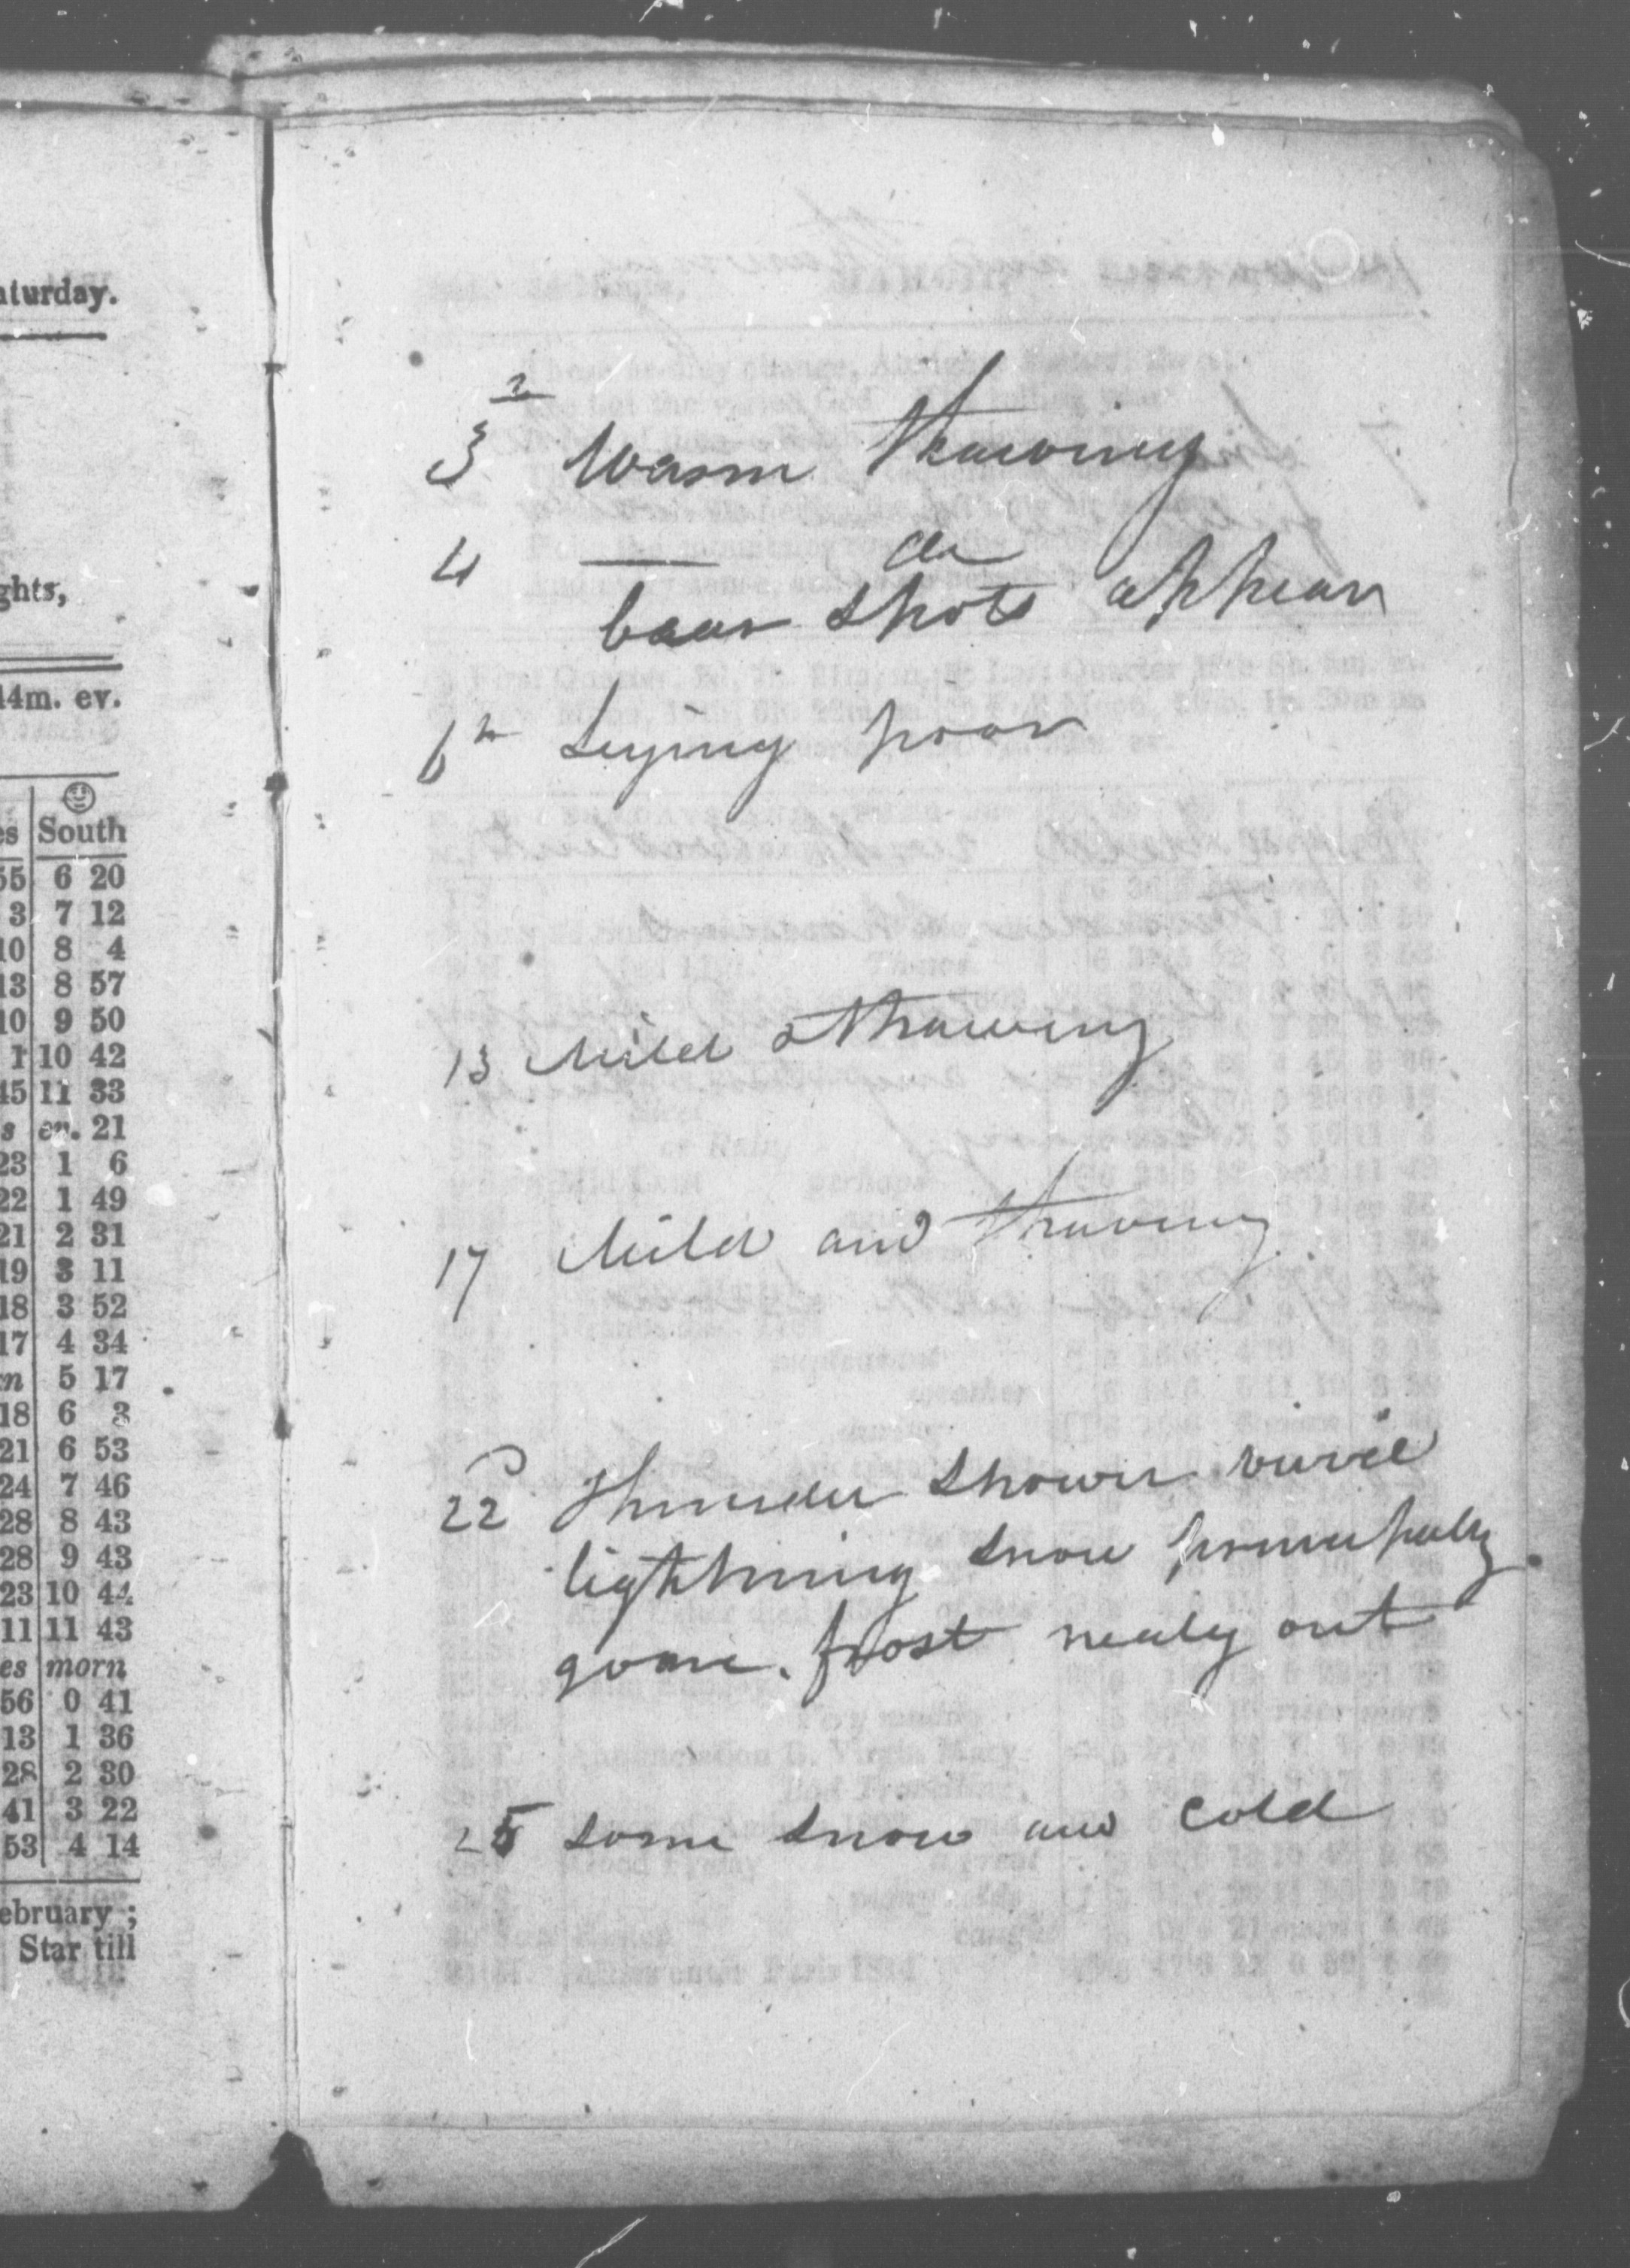 aturday.
ghts,
14m. ev.
es South
55 6 20
3 7 12
10 8 4
13 8 57
10 9 50
1 10 42
45 11 33
s ev. 21
23 1 6
22 1 49
21 2 31
19 3 11
18 3 52
17 4 34
rn 5 17
18 6 3
21 6 53
24 7 46
28 8 43
28 9 43
23 10 44
11 11 43
es morn
56 0 41
13 1 36
28 2 30
41 3 22
53 4 14
ebruary ;
Star till
2
3 Warm thawing
4 — do
baar spots appear
6th poor
13 Mild & thawing
17 Mild and thawing
22 Thunder shower
lightning snow principally
goane. frost nealy out
25 some snow and cold